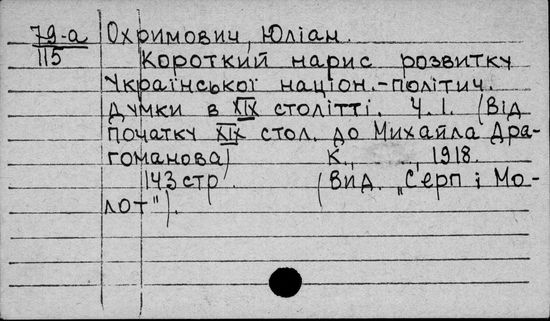 79-а Охримович, Юліан.
115 Короткий нарис розвитку
Української націон.-політич.
думки в XIX столітті. Ч.1. (Від
початку XIX стол. до Михайла Дра-
гоманова) К., , 1918.
143 стр. (Вид. „Серп і Мо-
лот").